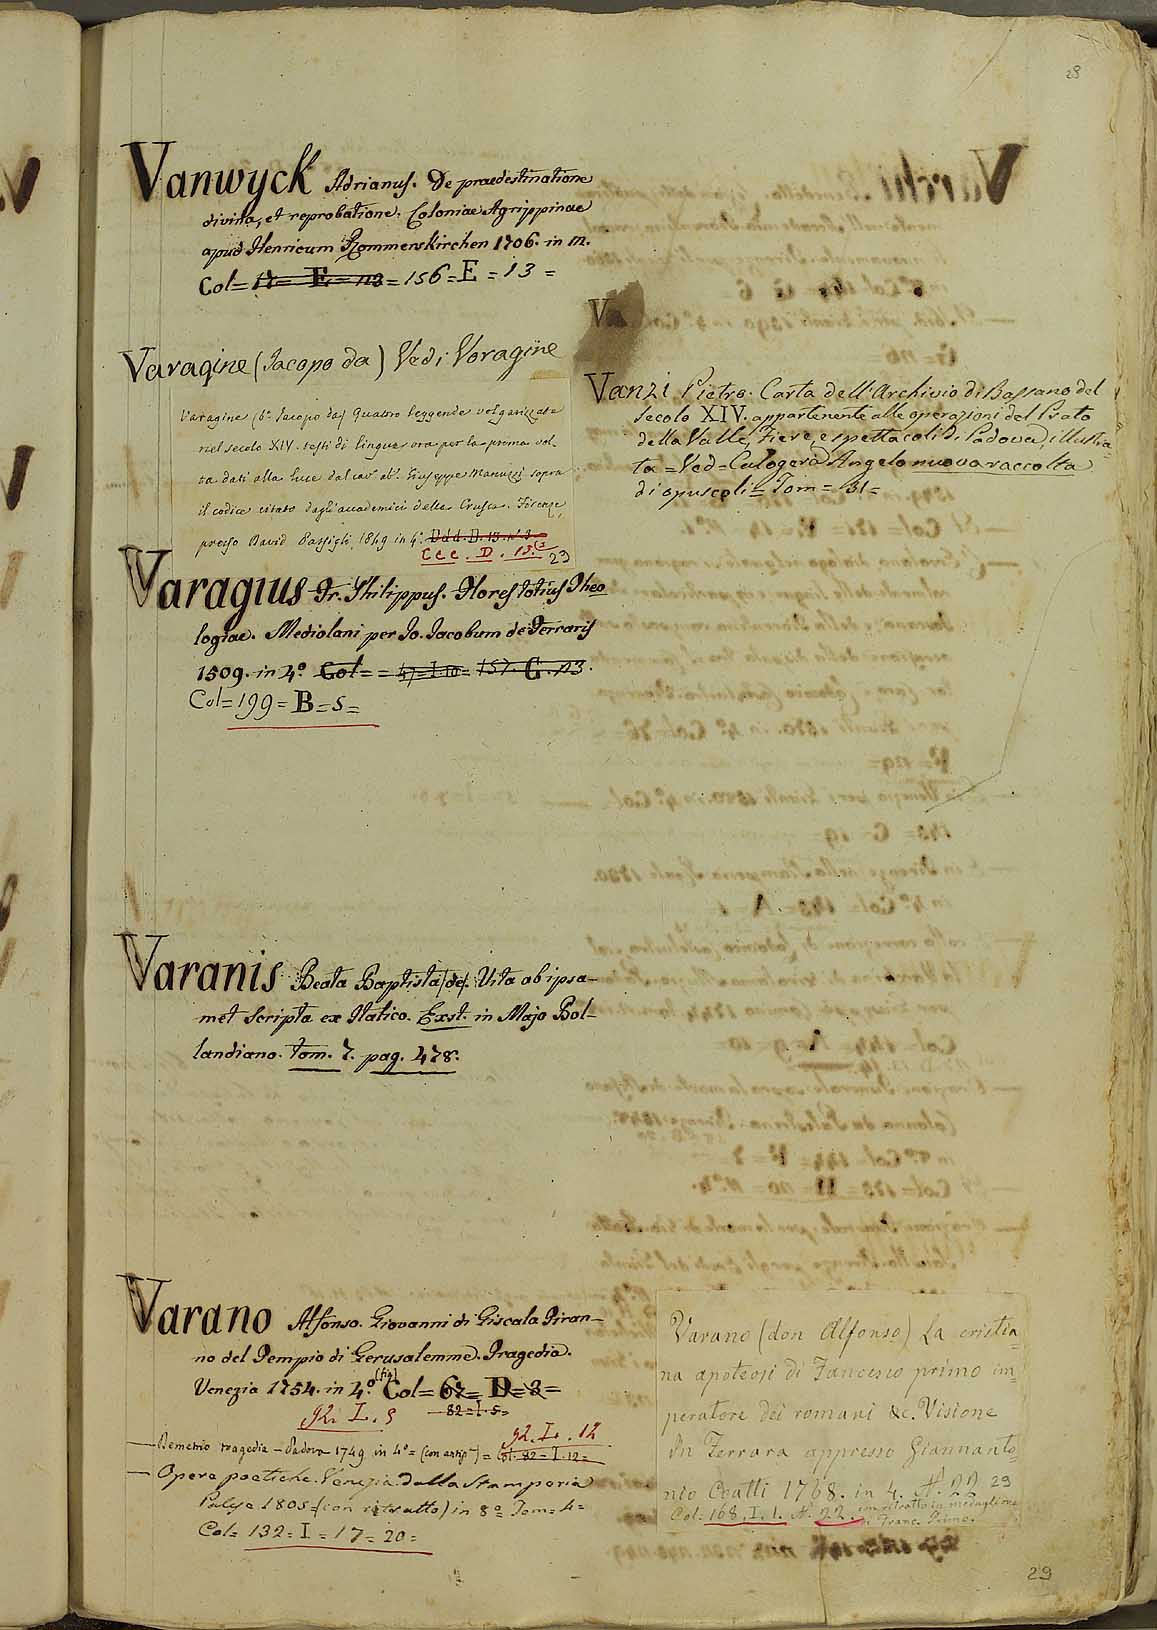 28
Vanwyck Adrianus. De praedestinatione
divina, et reprobatione. Coloniae Agrippinae
apud Henricum Rommerskirchen 1706. in 12.
Col= 17= E= 113= 156= E = 13 =
Varagine (Jacopo da) Vedi Voragine
Varagine (b.º Jacopo da) Quattro leggende volgarizzate
nel secolo XIV. testi di lingua ora per la prima vol
ta dati alla luce dal cavº abº. Giuseppe Manuzzi sopra
il codice citato dagli accademici della Crusca. Firenze,
presso David Passigli, 1849 in 4º. Ddd. D. 13. nº 3
CCC. D. 15.
23
Varagius Fr. Philippus. Flores totius Theo
logiae. Mediolani per Jo. Jacobum de Ferraris
1509. in 4º Col= = 47=I.10= 157. C. 113.
Col= 199= B= 5=
Varanis Beata Baptista (de). Vita ab ipsa-
met Scripta ex Italico. Exst. in Majo Bol-
landiano. tom. 7. pag. 478.
Varano Alfonso. Giovanni di Giscala Tiran-
no del Tempio di Gerusalemme. Tragedia.
Venezia 1754. in 4.º (fig) Col= 67= D= 3=
92. I. 5 — 82=I.5=
92. I. 12
— Demetrio tragedia – Padova 1749 in 4º = (con antip) = Col. 82=I.12=
— Opere poetiche. Venezia dalla Stamperia
Palese 1805 (con ritratto) in 8º Tom= 4=
Col= 132= I= 17= 20=
Va
Vanzi Pietro. Carta dell'Archivio di Bassano del
secolo XIV. appartenente alle operazioni del Prato
della Valle, Fiere, e spettacoli di Padova, illustra=
ta = Ved= Calogerà Angelo nuova raccolta
di opuscoli = Tom= 31=
Varano (don Alfonso) La cristia=
na apoteosi di Francesco primo im=
peratore dei romani &c. Visione
In Ferrara appresso Giannanto=
nio Coatti 1768. in 4. Nº. 22 29
Col= 168. I. 1. Nº. 22. con ritratto in medaglione
di Franc. Primo.
29